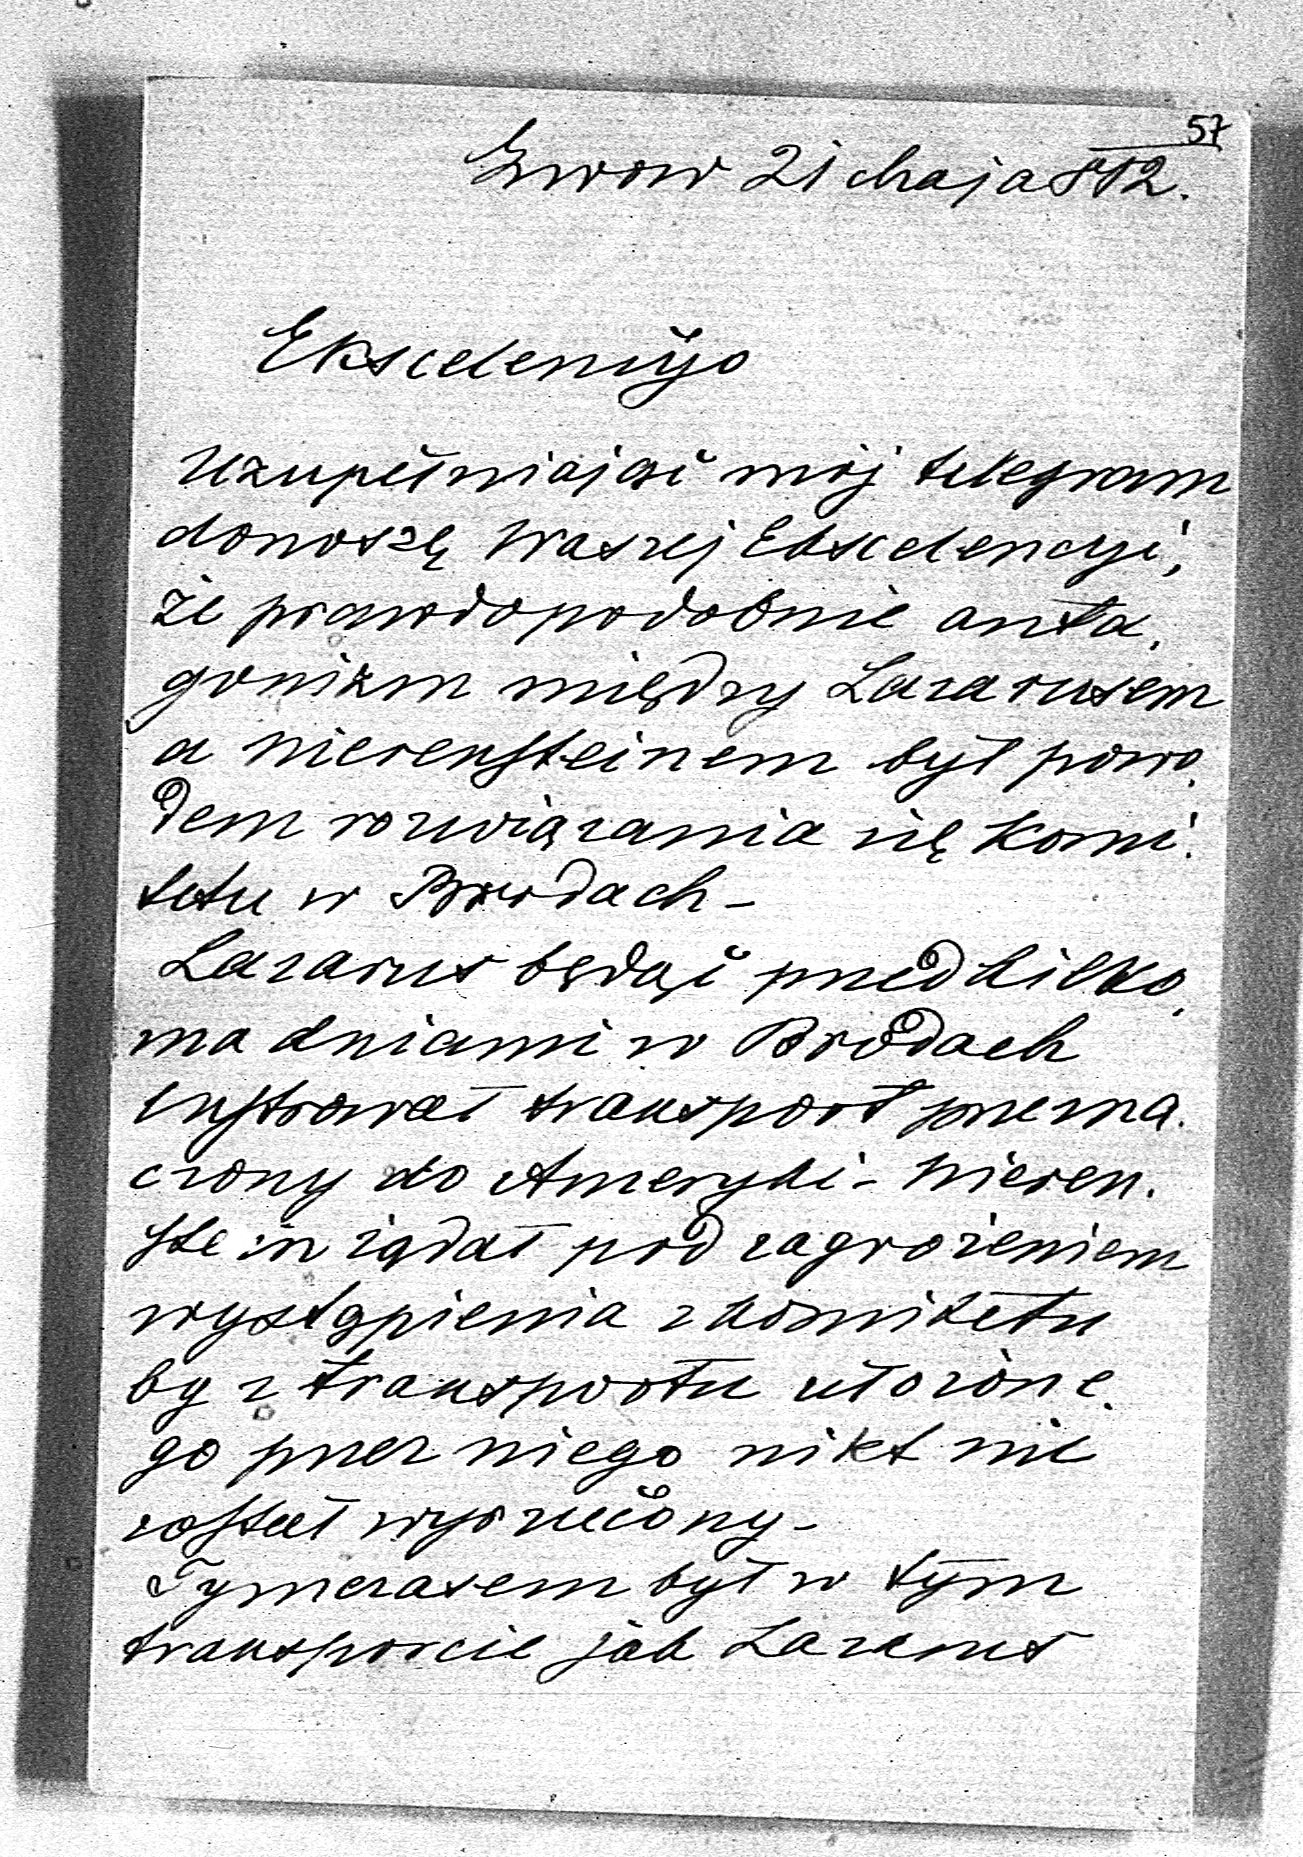 57
Lwow 21 Maja 882.
Ekscelencyjo
Uzupełniając mój telegram
donoszę Waszej Ekscelencyi,
że prawdopodobnie anta-
gonizm między Lazarusem
a Nierensteinem był powo-
dem rozwiązania się Komi-
tetu w Brodach -
Lazarus będąc przed kilko-
ma dniami w Brodach
lustrował transport przezna-
czony do Ameryki - Nieren-
stein żądał pod zagrożeniem
wystąpienia z komitetu
by z transportu ułożone-
go przez niego nikt nie
został wyrzucony -
Tymczasem był w tym
transporcie jak Lazarus